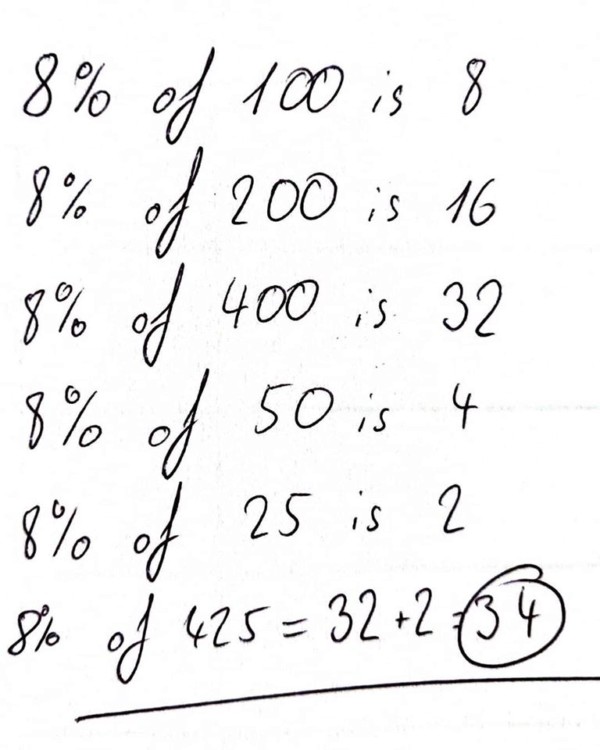 8% of 100 is 8
8% of 200 is 16
8% of 400 is 32
8% of 50 is 4
8% of 25 is 2
8% of 425 = 32+2 = 34